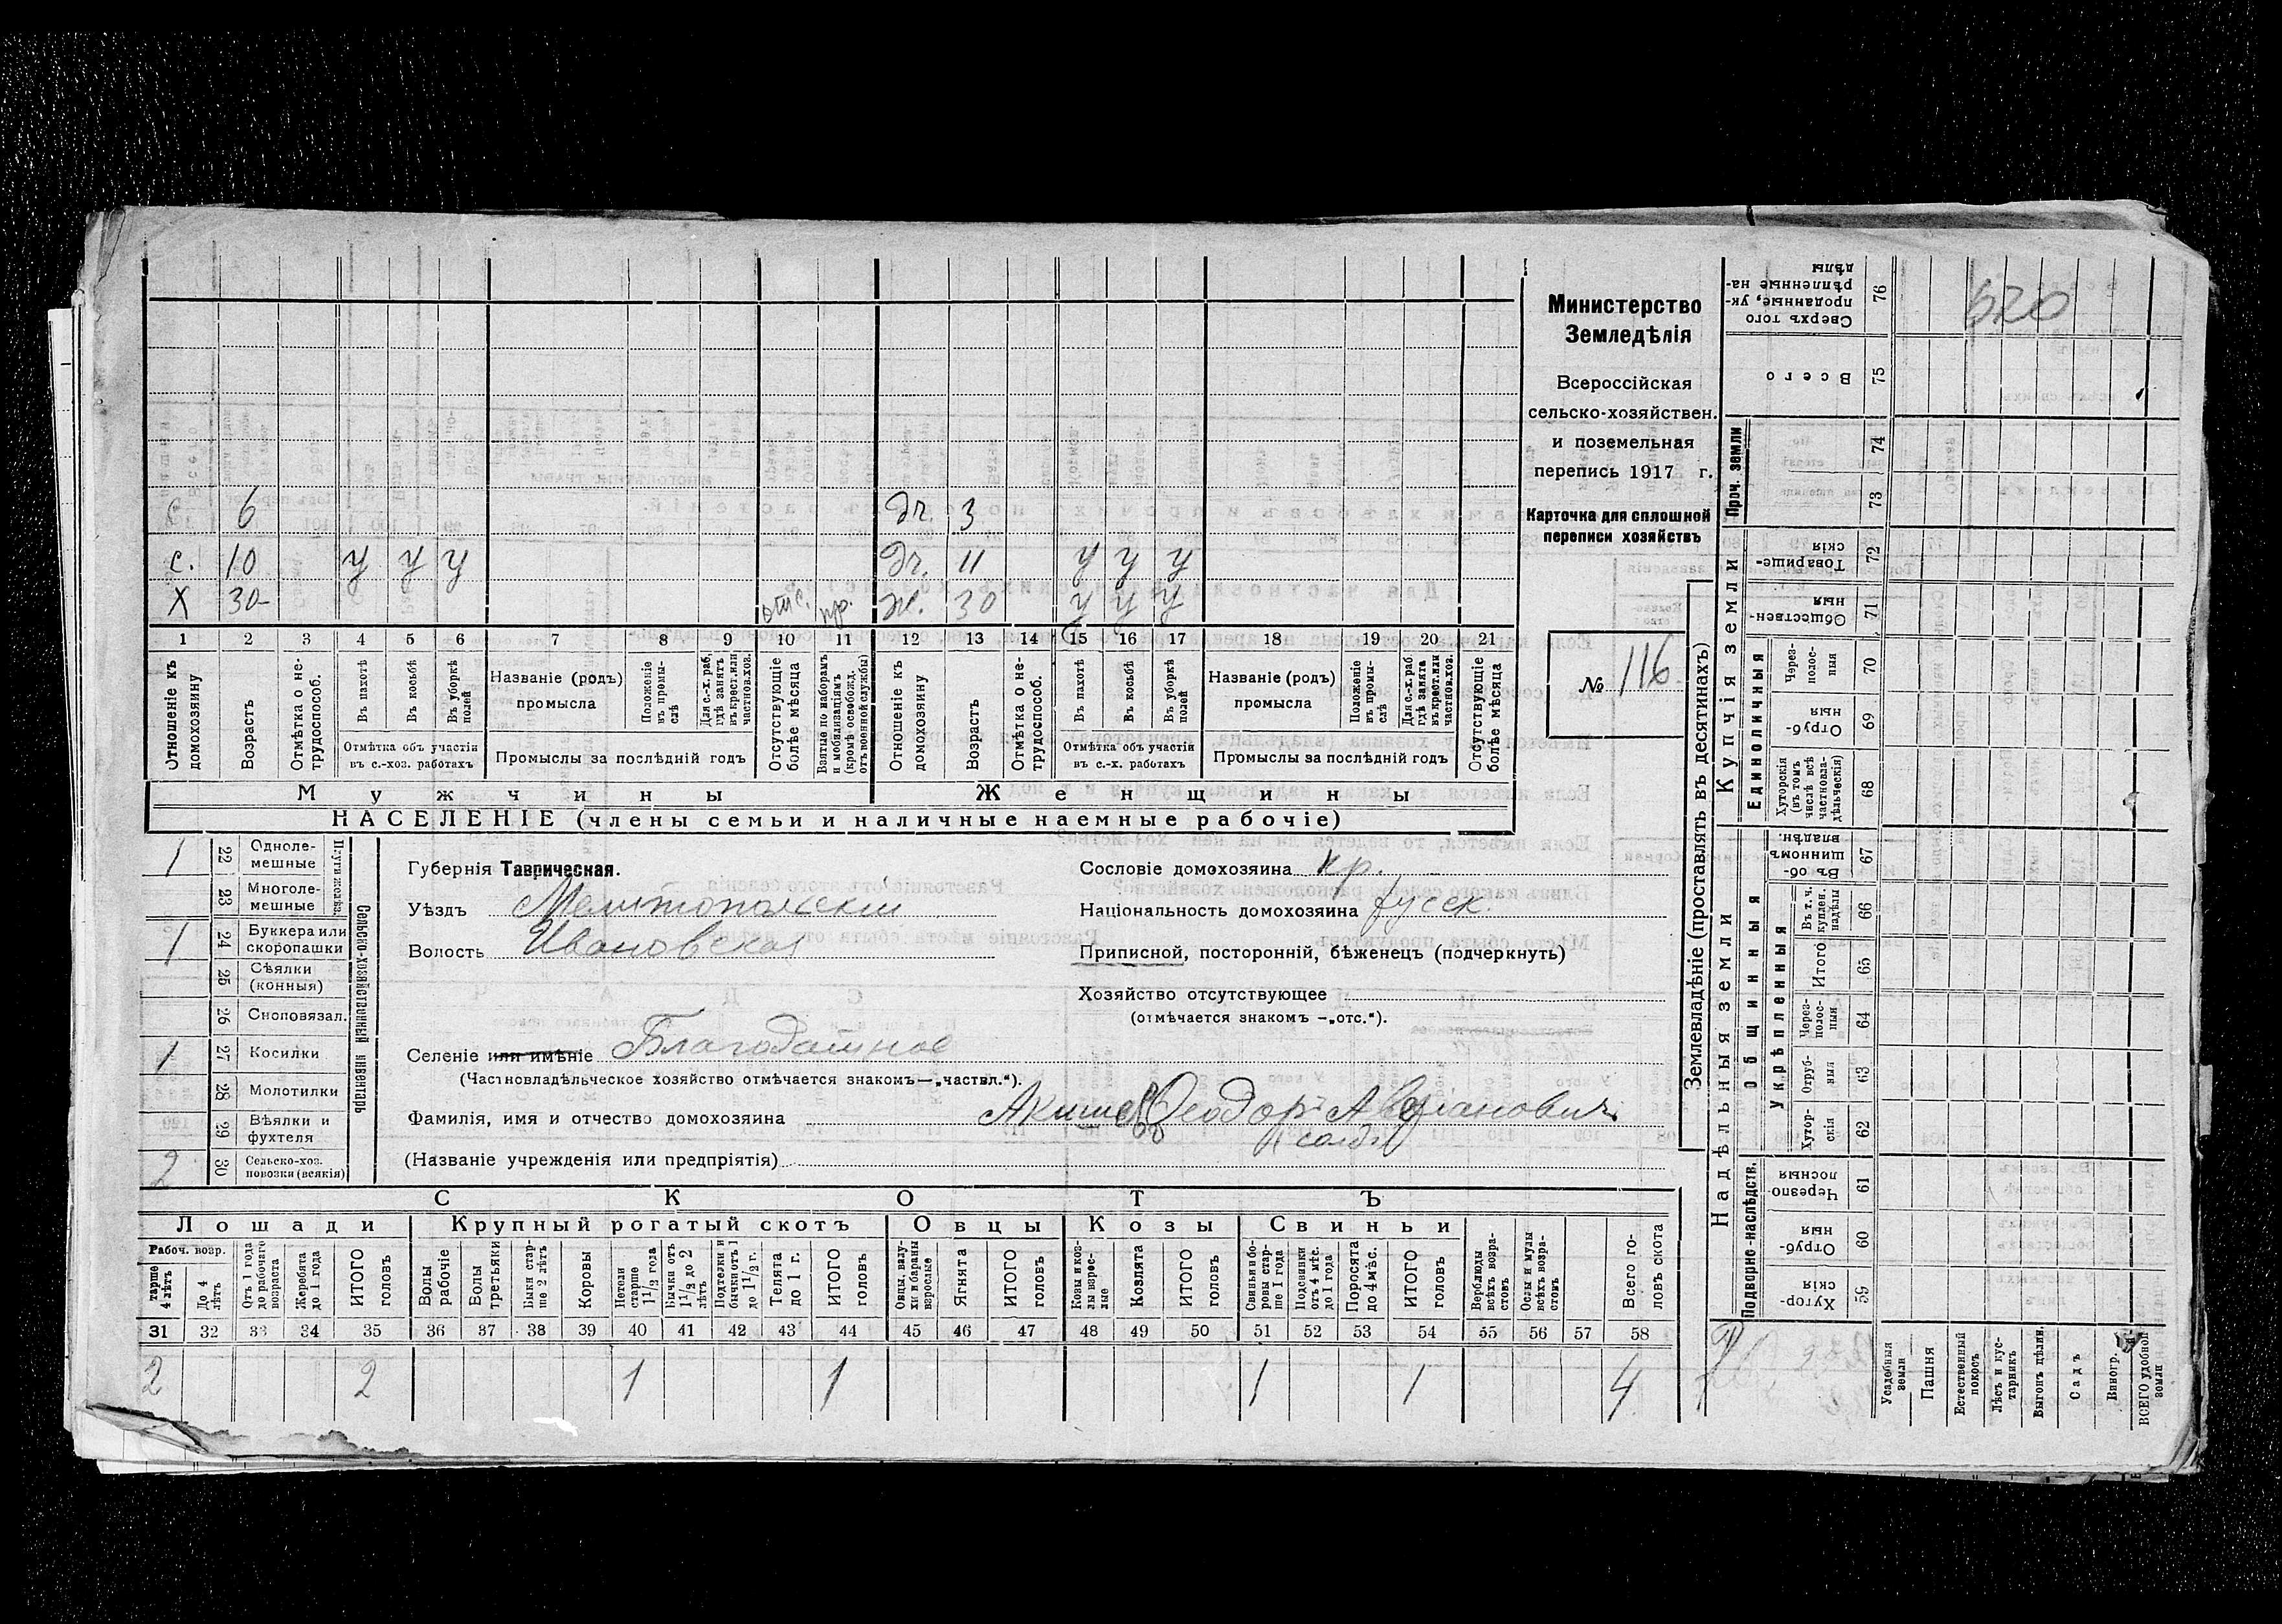 С 6 дч. 3
с. 10 у у у дч. 11 у у у
Х 30 отс. пр. ж. 30 у у у
1 2 3 4 5 6 7 8 9 10 11 12 13 14 15 16 17 18 19 20 21
Отношеніе къ домохозяину
Возрастъ
Отмѣтка о не-
трудоспособ.
Въ пахотѣ
Въ косьбѣ
Въ уборкѣ
полей
Отмѣтка объ участіи
въ с.-хоз. работахъ
Названіе (родъ)
промысла
Положеніе
въ промы-
слѣ
Для с.-х. раб.
гдѣ занятъ
въ крест. или
частнов.хоз.
Промыслы за послѣдній годъ
Отсутствующіе
болѣе мѣсяца
Взятые по наборамъ
и мобилизаціямъ
(кромѣ освобожд.
отъ военной службы)
Отношеніе къ
домохозяину
Возрастъ
Отмѣтка о не-
трудоспособ.
Въ пахотѣ
Въ косьбѣ
Въ уборкѣ
полей
Отмѣтка объ участіи
въ с.-х. работахъ
Названіе (родъ)
промысла
Положеніе
въ промы-
слѣ
Для с.-х. раб
гдѣ занята
въ крест. или
частнов.хоз.
Промыслы за послѣдній годъ
Отсутствующіе
болѣе мѣсяца
Мужчины Женщины
НАСЕЛЕНІЕ (члены семьи и наличные наемные рабочіе)
Министерство
Земледѣлія
Всероссійская
сельско-хозяйствен.
и поземельная
перепись 1917 г.
Карточка для сплошной
переписи хозяйствъ
№ 116
1 22 Одноле-
мешные
23 Многоле-
мешные
Плуги желѣз.
1 24 Буккера или
скоропашки
25 Сѣялки
(конныя)
26 Сноповязал.
1 27 Косилки
28 Молотилки
29 Вѣялки и
фухтеля
2 30 Сельско-хоз.
повозки (всякія)
Сельско-хозяйственный инвентарь
Губернія Таврическая.
Уѣздъ Мелитопольскій
Волость Ивановская
Селеніе или имѣніе Благодатное
(Частновладѣльческое хозяйство отмѣчается знакомъ—„частвл.“).
Фамилія, имя и отчество домохозяина Акишевъ Ѳеодоръ Аверіановичъ
солд.
(Названіе учрежденія или предпріятія)
Сословіе домохозяина кр.
Національность домохозяина русск.
Приписной, посторонній, бѣженецъ (подчеркнуть)
Хозяйство отсутствующее
(отмѣчается знакомъ —„отс.“).
СКОТЪ
Лошади Крупный рогатый скотъ Овцы Козы Свиньи
Рабоч. возр.
тарше
4 лѣтъ
До 4
лѣтъ
Отъ 1 года
до рабочаго
возраста
Жеребята
до 1 года
ИТОГО
головъ
Волы
рабочіе
Волы
третьяки
Быки стар-
ше 2 лѣтъ
Коровы
Нетели
старше
1½ года
Бычки отъ
1½ до 2
лѣтъ
Подтелки и
бычки отъ 1
до 1½ г.
Телята
до 1 г.
ИТОГО
головъ
Овцы, валу-
хи и бараны
взрослые
Ягнята
ИТОГО
головъ
Козы и коз-
лы взрос-
лые
Козлята
ИТОГО
головъ
Свиньи и бо-
ровы стар-
ше 1 года
Подсвинки
отъ 4 мѣс.
до 1 года
Поросята
до 4 мѣс.
ИТОГО
головъ
Верблюды
всѣхъ возра-
стовъ
Ослы и мулы
всѣхъ возра-
стовъ
Всего го-
ловъ скота
31 32 33 34 35 36 37 38 39 40 41 42 43 44 45 46 47 48 49 50 51 52 53 54 55 56 57 58
2 2 1 1 1 1 4
Землевладѣніе (проставлять въ десятинахъ)
Надѣльныя земли Купчія земли
Подворно-наслѣдств.
Общинныя
Укрѣпленныя
Единоличныя
Проч. земли
Сверхъ того
проданные, ук-
рѣпленные на-
дѣлы 76
Всего 75
74
73
Товарище-
скія 72
Обществен-
ныя 71
Через-
полос-
ныя 70
Отруб-
ныя 69
Хуторскія
(въ томъ
числѣ всѣ
частновла-
дѣльческія) 68
Въ об-
щинномъ
владѣн. 67
Въ т. ч.
куплен.
надѣлы 66
Итого 65
Через-
полос-
ныя 64
Отруб-
ныя 63
Хутор-
скія 62
Черезпо-
лосныя 61
Отруб-
ныя 60
Хутор-
скія 59
Усадебныя
земли
Пашня
Естественный
покосъ
Лѣсъ и кус-
тарникъ
Выгонъ цѣлин.
Садъ
Виногр.
ВСЕГО удобной
земли